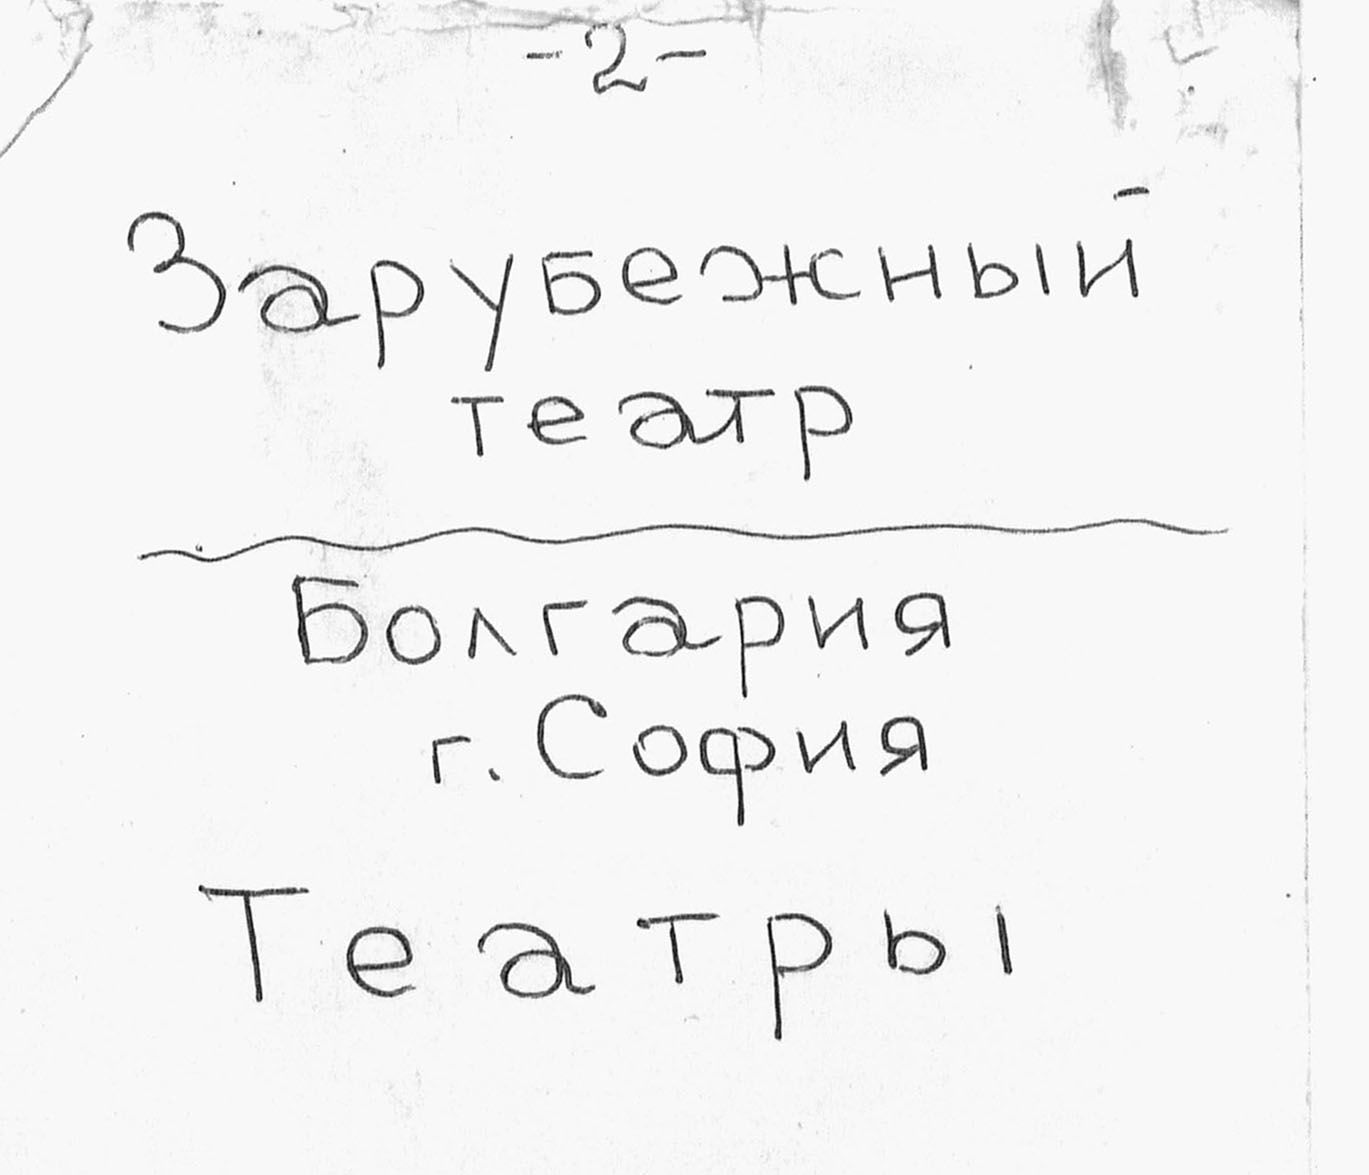 -2-
Зарубежный
театр
Болгария
г. София
Театры